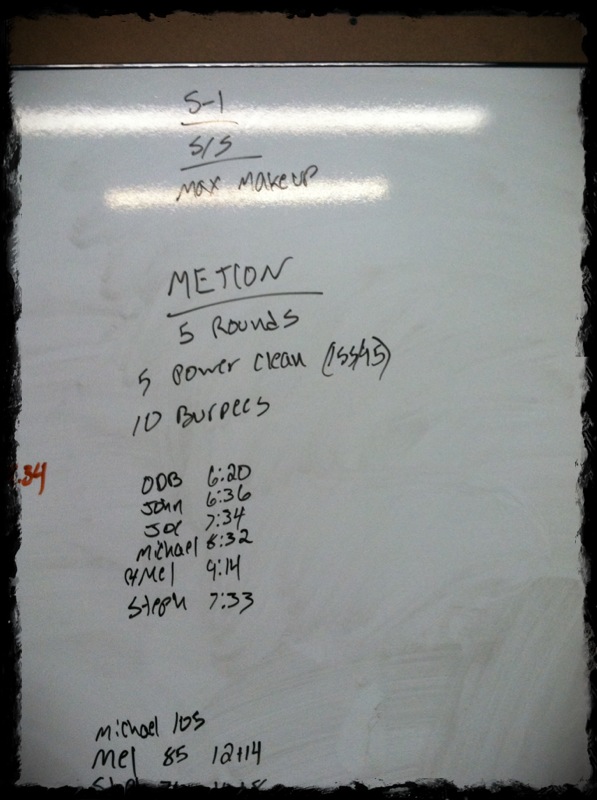 S-1
S/S
max makeup
METCON
5 Rounds
5 Power clean (155/95)
10 Burpees
.34
ODB 6:20
John 6:36
Joe 7:34
Michael 8:32
Mel 9:14
Steph 7:33
Michael 105
Mel 85 12+14